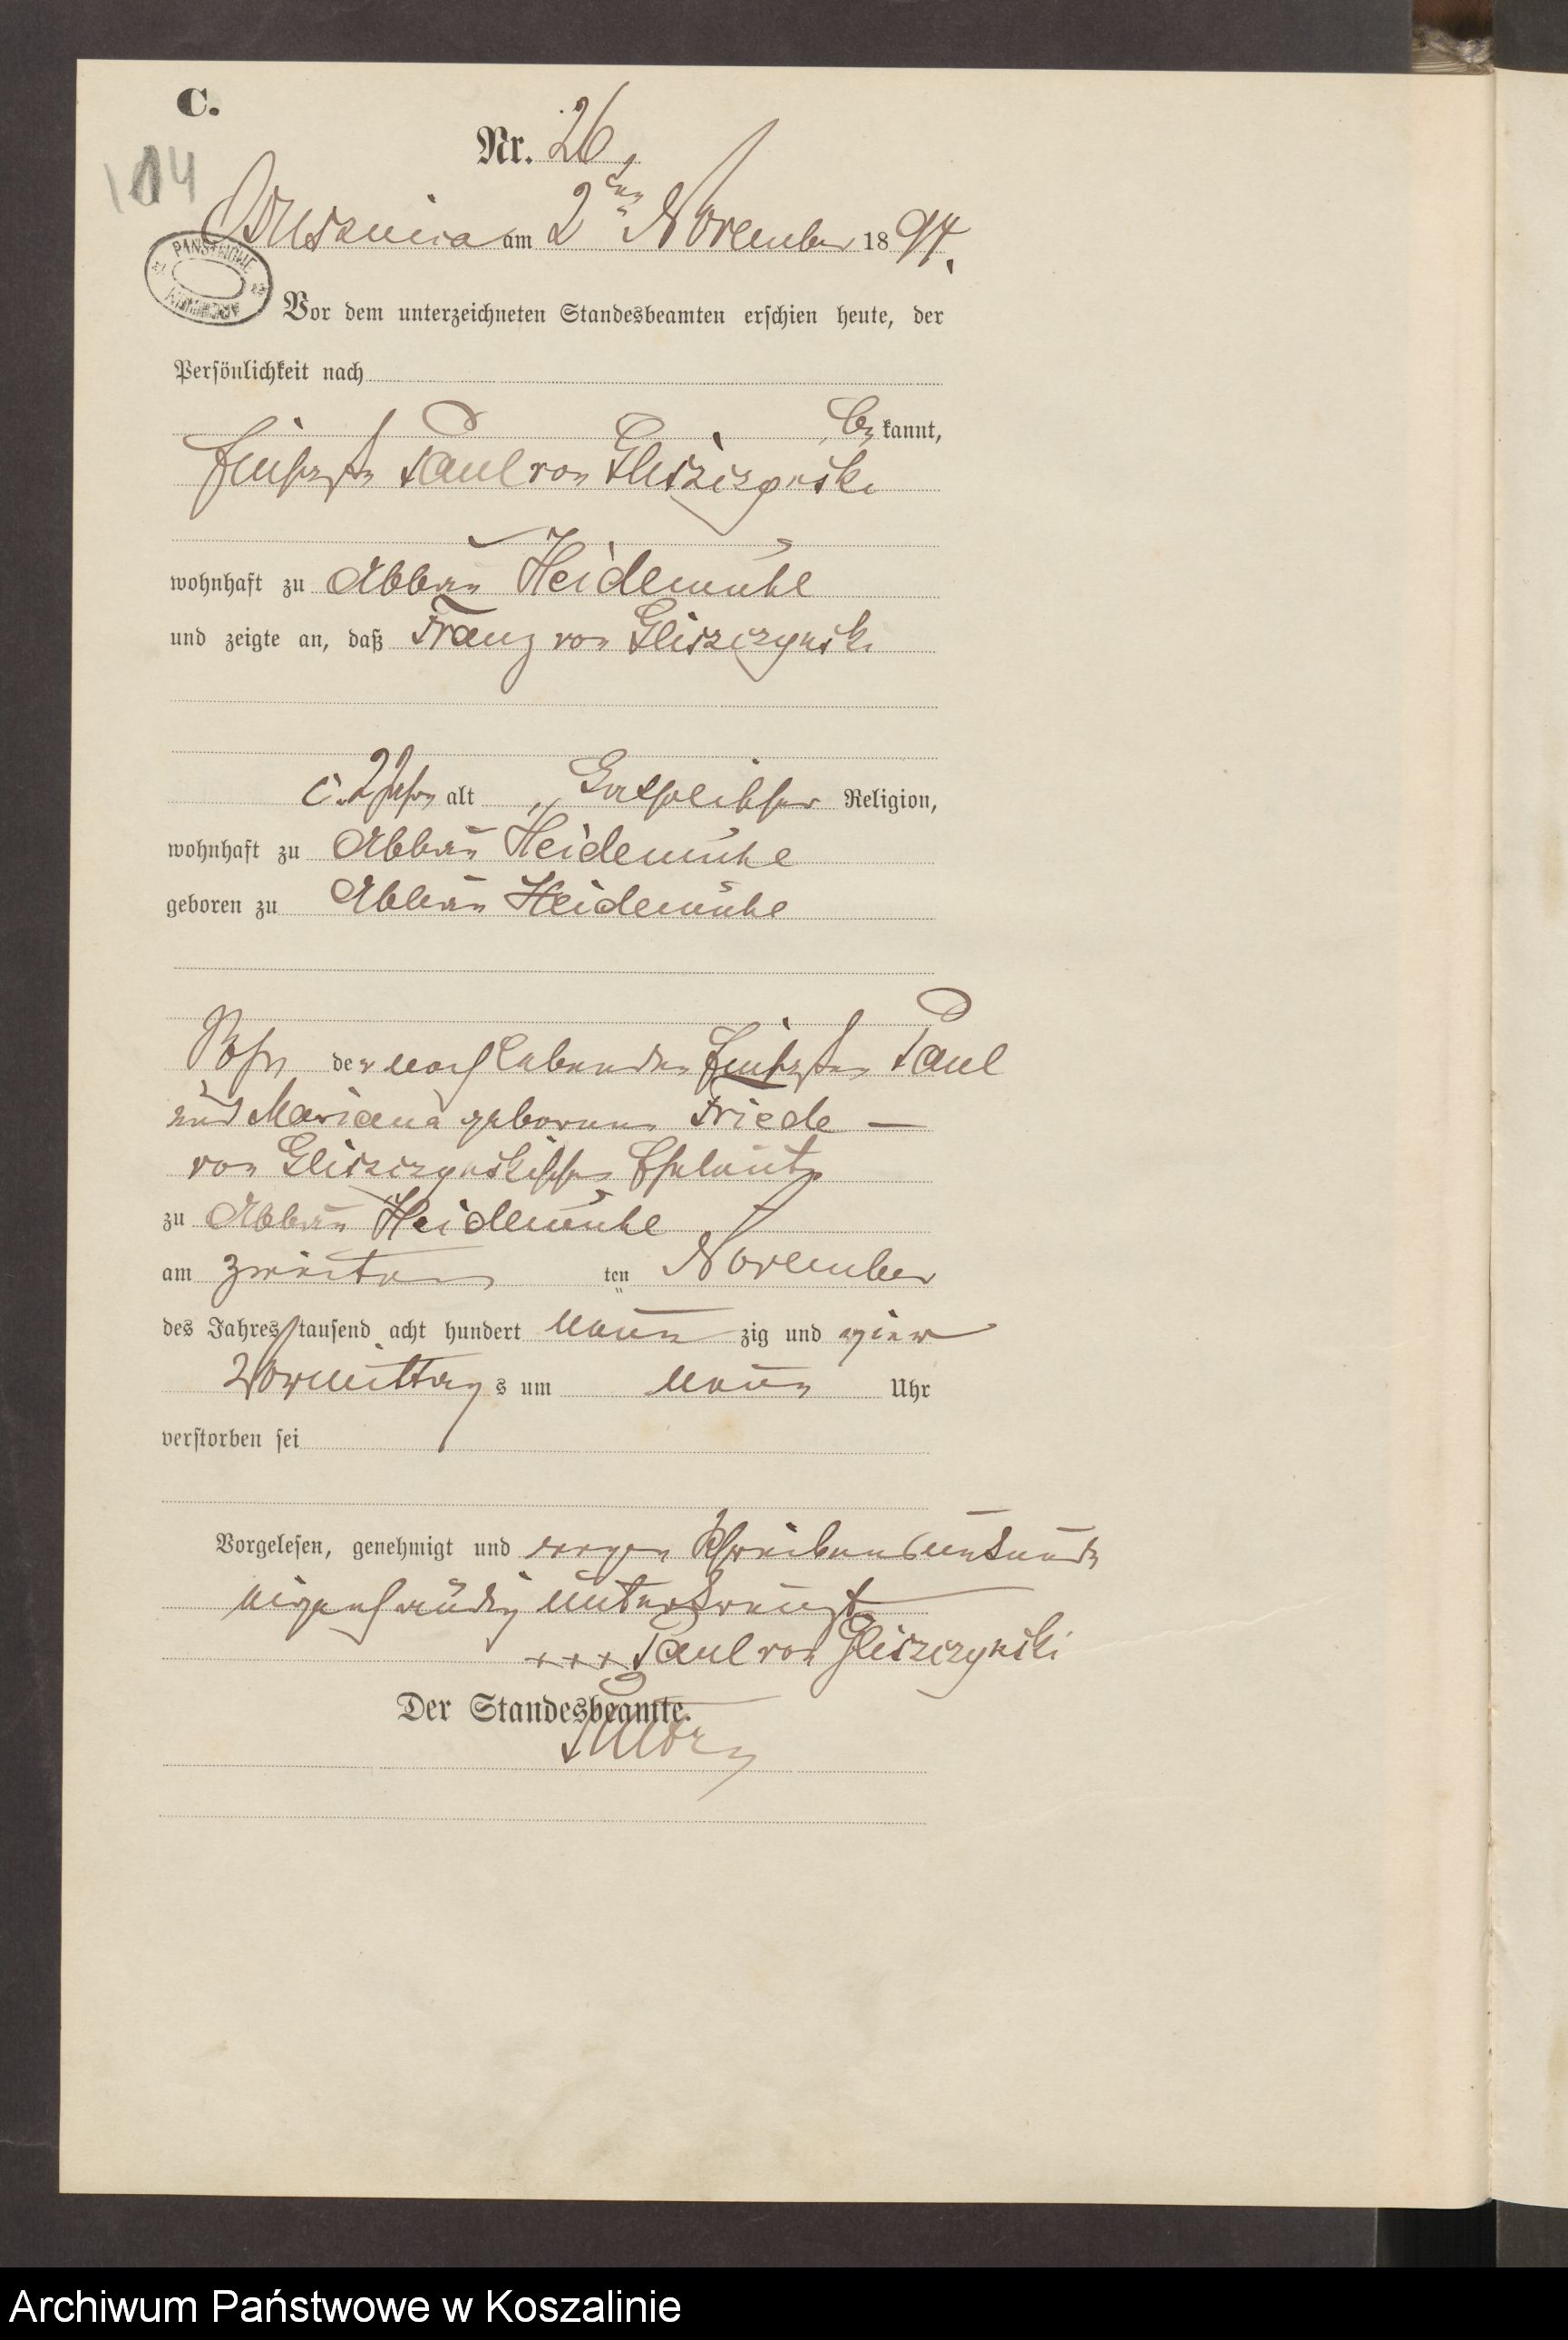 C.
Nr. 26.
104
Brusznica am 2ten November 1894.
PAŃSTWOWE ARCHIWUM
Vor dem unterzeichneten Standesbeamten erschien heute, der
Persönlichkeit nach
be kannt,
Paul von Gliszczynski
wohnhaft zu Abbau Heidemühl
und zeigte an, daß Franz von Gliszczynski
c. 2 Jahr alt, katholischer Religion,
wohnhaft zu Abbau Heidemühl
geboren zu Abbau Heidemühl
Sohn der noch lebenden Paul
und Mariana geborene Friede —
von Gliszczynskischen Eheleute
zu Abbau Heidemühl
am zweiten ten November
des Jahres tausend acht hundert neun zig und vier
Vormittag s um neun Uhr
verstorben sei
Vorgelesen, genehmigt und wegen Schreibensunkunde
eigenhändig unterkreuzt
+++ Paul von Gliszczynski
Der Standesbeamte.
Archiwum Państwowe w Koszalinie